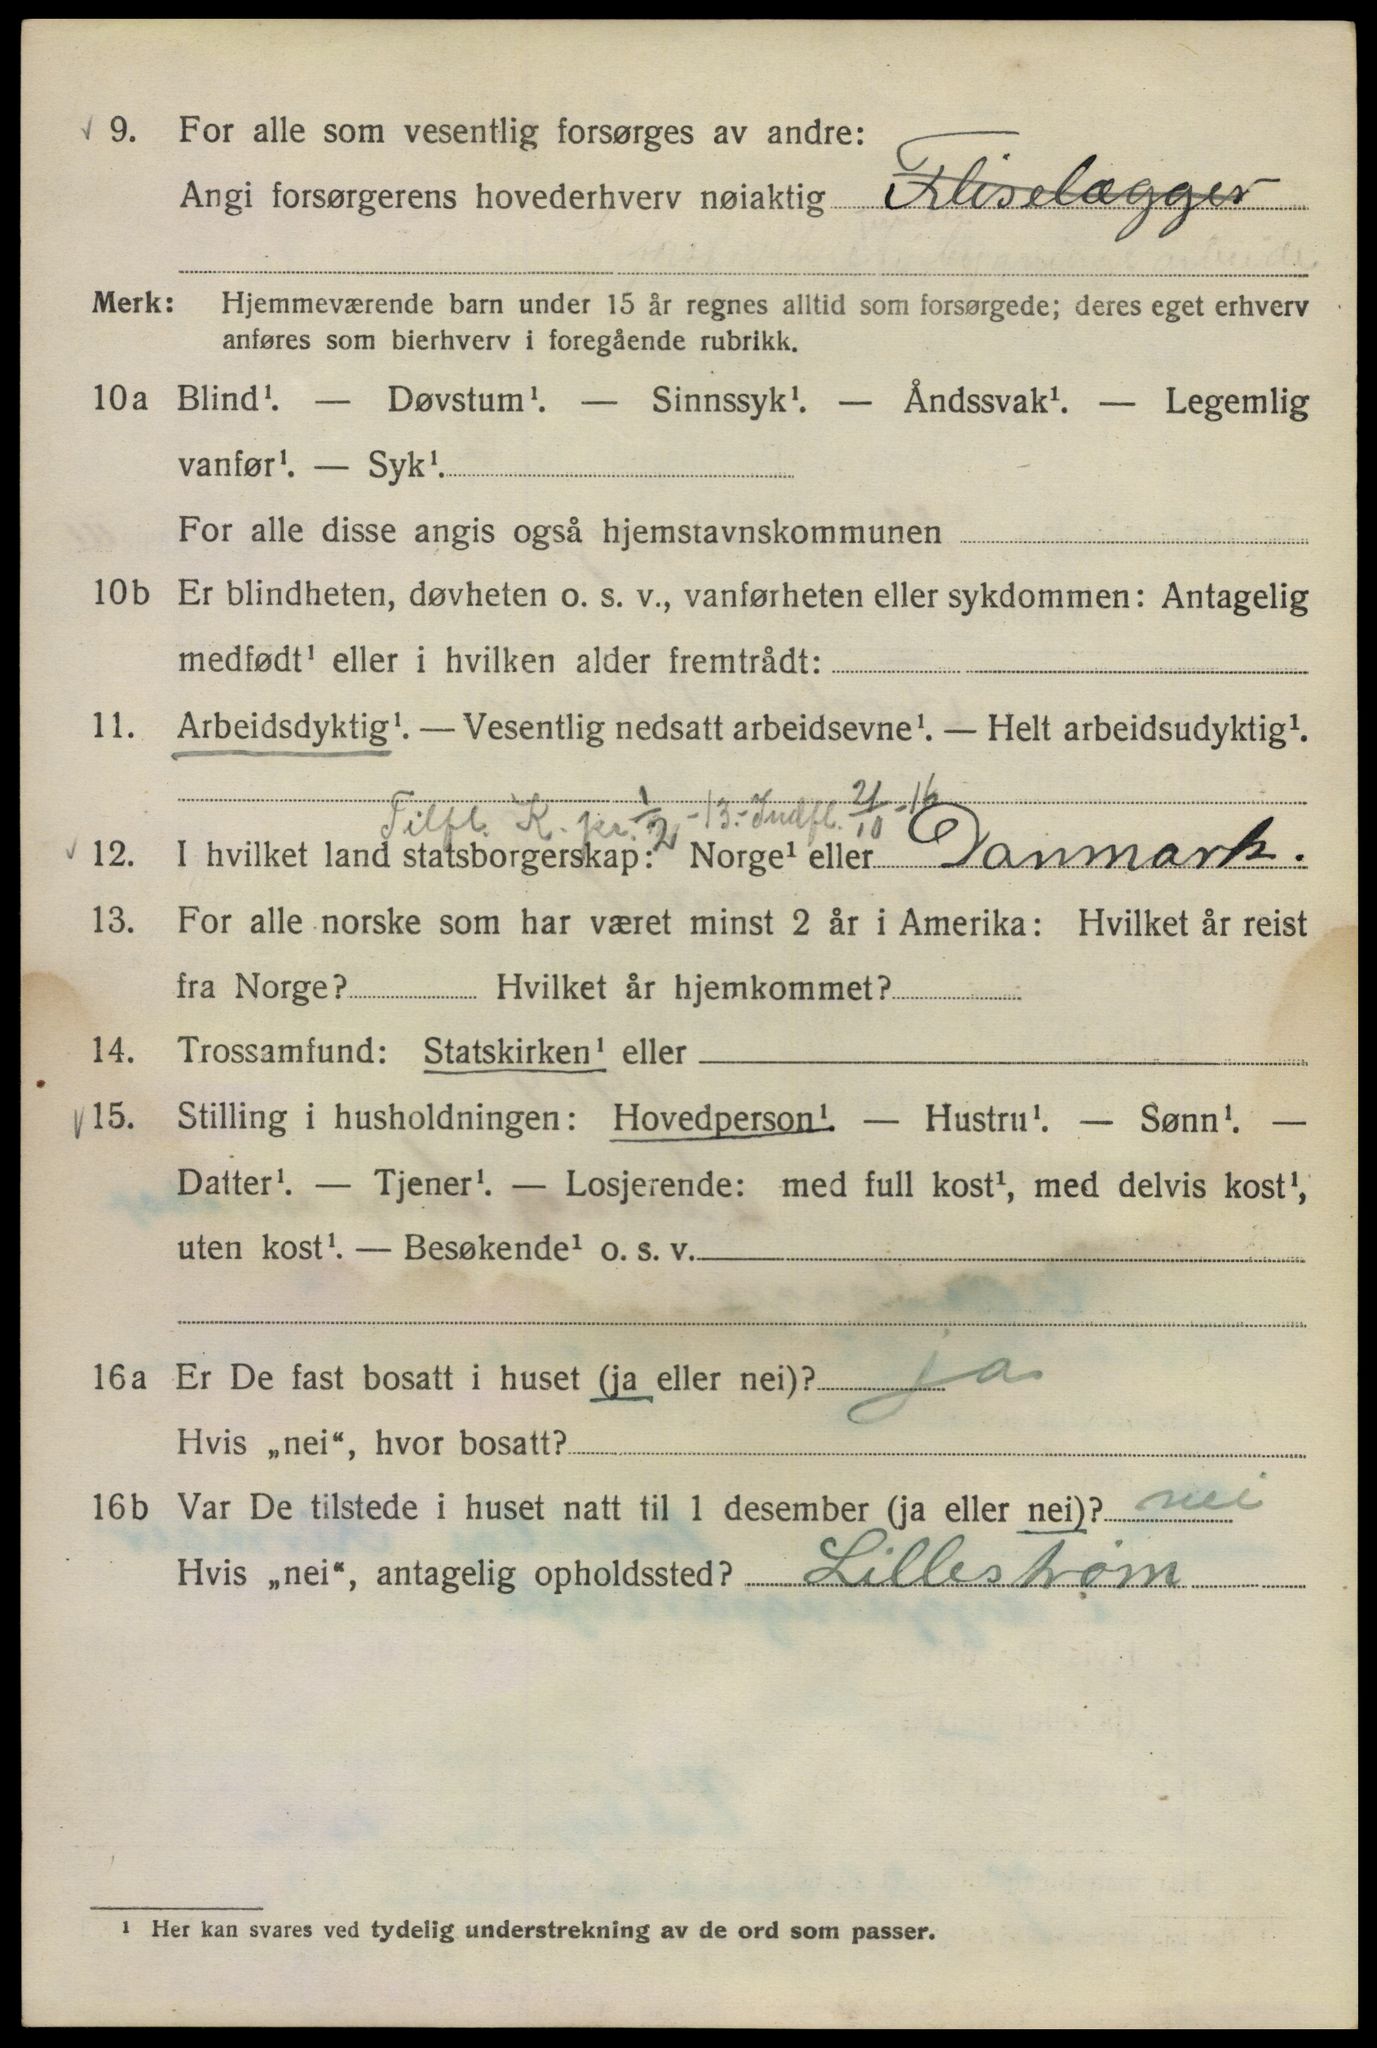 9. For alle som vesentlig forsørges av andre:
Angi forsørgerens hovederhverv nøiaktig Fliselægger
Merk: Hjemmeværende barn under 15 år regnes alltid som forsørgede; deres eget erhverv
anføres som bierhverv i foregående rubrikk.
10a Blind¹. — Døvstum¹. — Sinnssyk¹. — Åndssvak¹. — Legemlig
vanfør¹. — Syk¹.
For alle disse angis også hjemstavnskommunen
10b Er blindheten, døvheten o. s. v., vanførheten eller sykdommen: Antagelig
medfødt¹ eller i hvilken alder fremtrådt:
11. Arbeidsdyktig¹. — Vesentlig nedsatt arbeidsevne¹. — Helt arbeidsudyktig¹.
Tilfl. K. pr. 1/2 -13. Indfl. 21/10 -16
12. I hvilket land statsborgerskap: Norge¹ eller Danmark.
13. For alle norske som har været minst 2 år i Amerika: Hvilket år reist
fra Norge? Hvilket år hjemkommet?
14. Trossamfund: Statskirken¹ eller
15. Stilling i husholdningen: Hovedperson¹. — Hustru¹. — Sønn¹. —
Datter¹. — Tjener¹. — Losjerende: med full kost¹, med delvis kost¹,
uten kost¹. — Besøkende¹ o. s. v.
16a Er De fast bosatt i huset (ja eller nei)? ja
Hvis „nei“, hvor bosatt?
16b Var De tilstede i huset natt til 1 desember (ja eller nei)? nei
Hvis „nei“, antagelig opholdssted? Lillestrøm
¹ Her kan svares ved tydelig understrekning av de ord som passer.